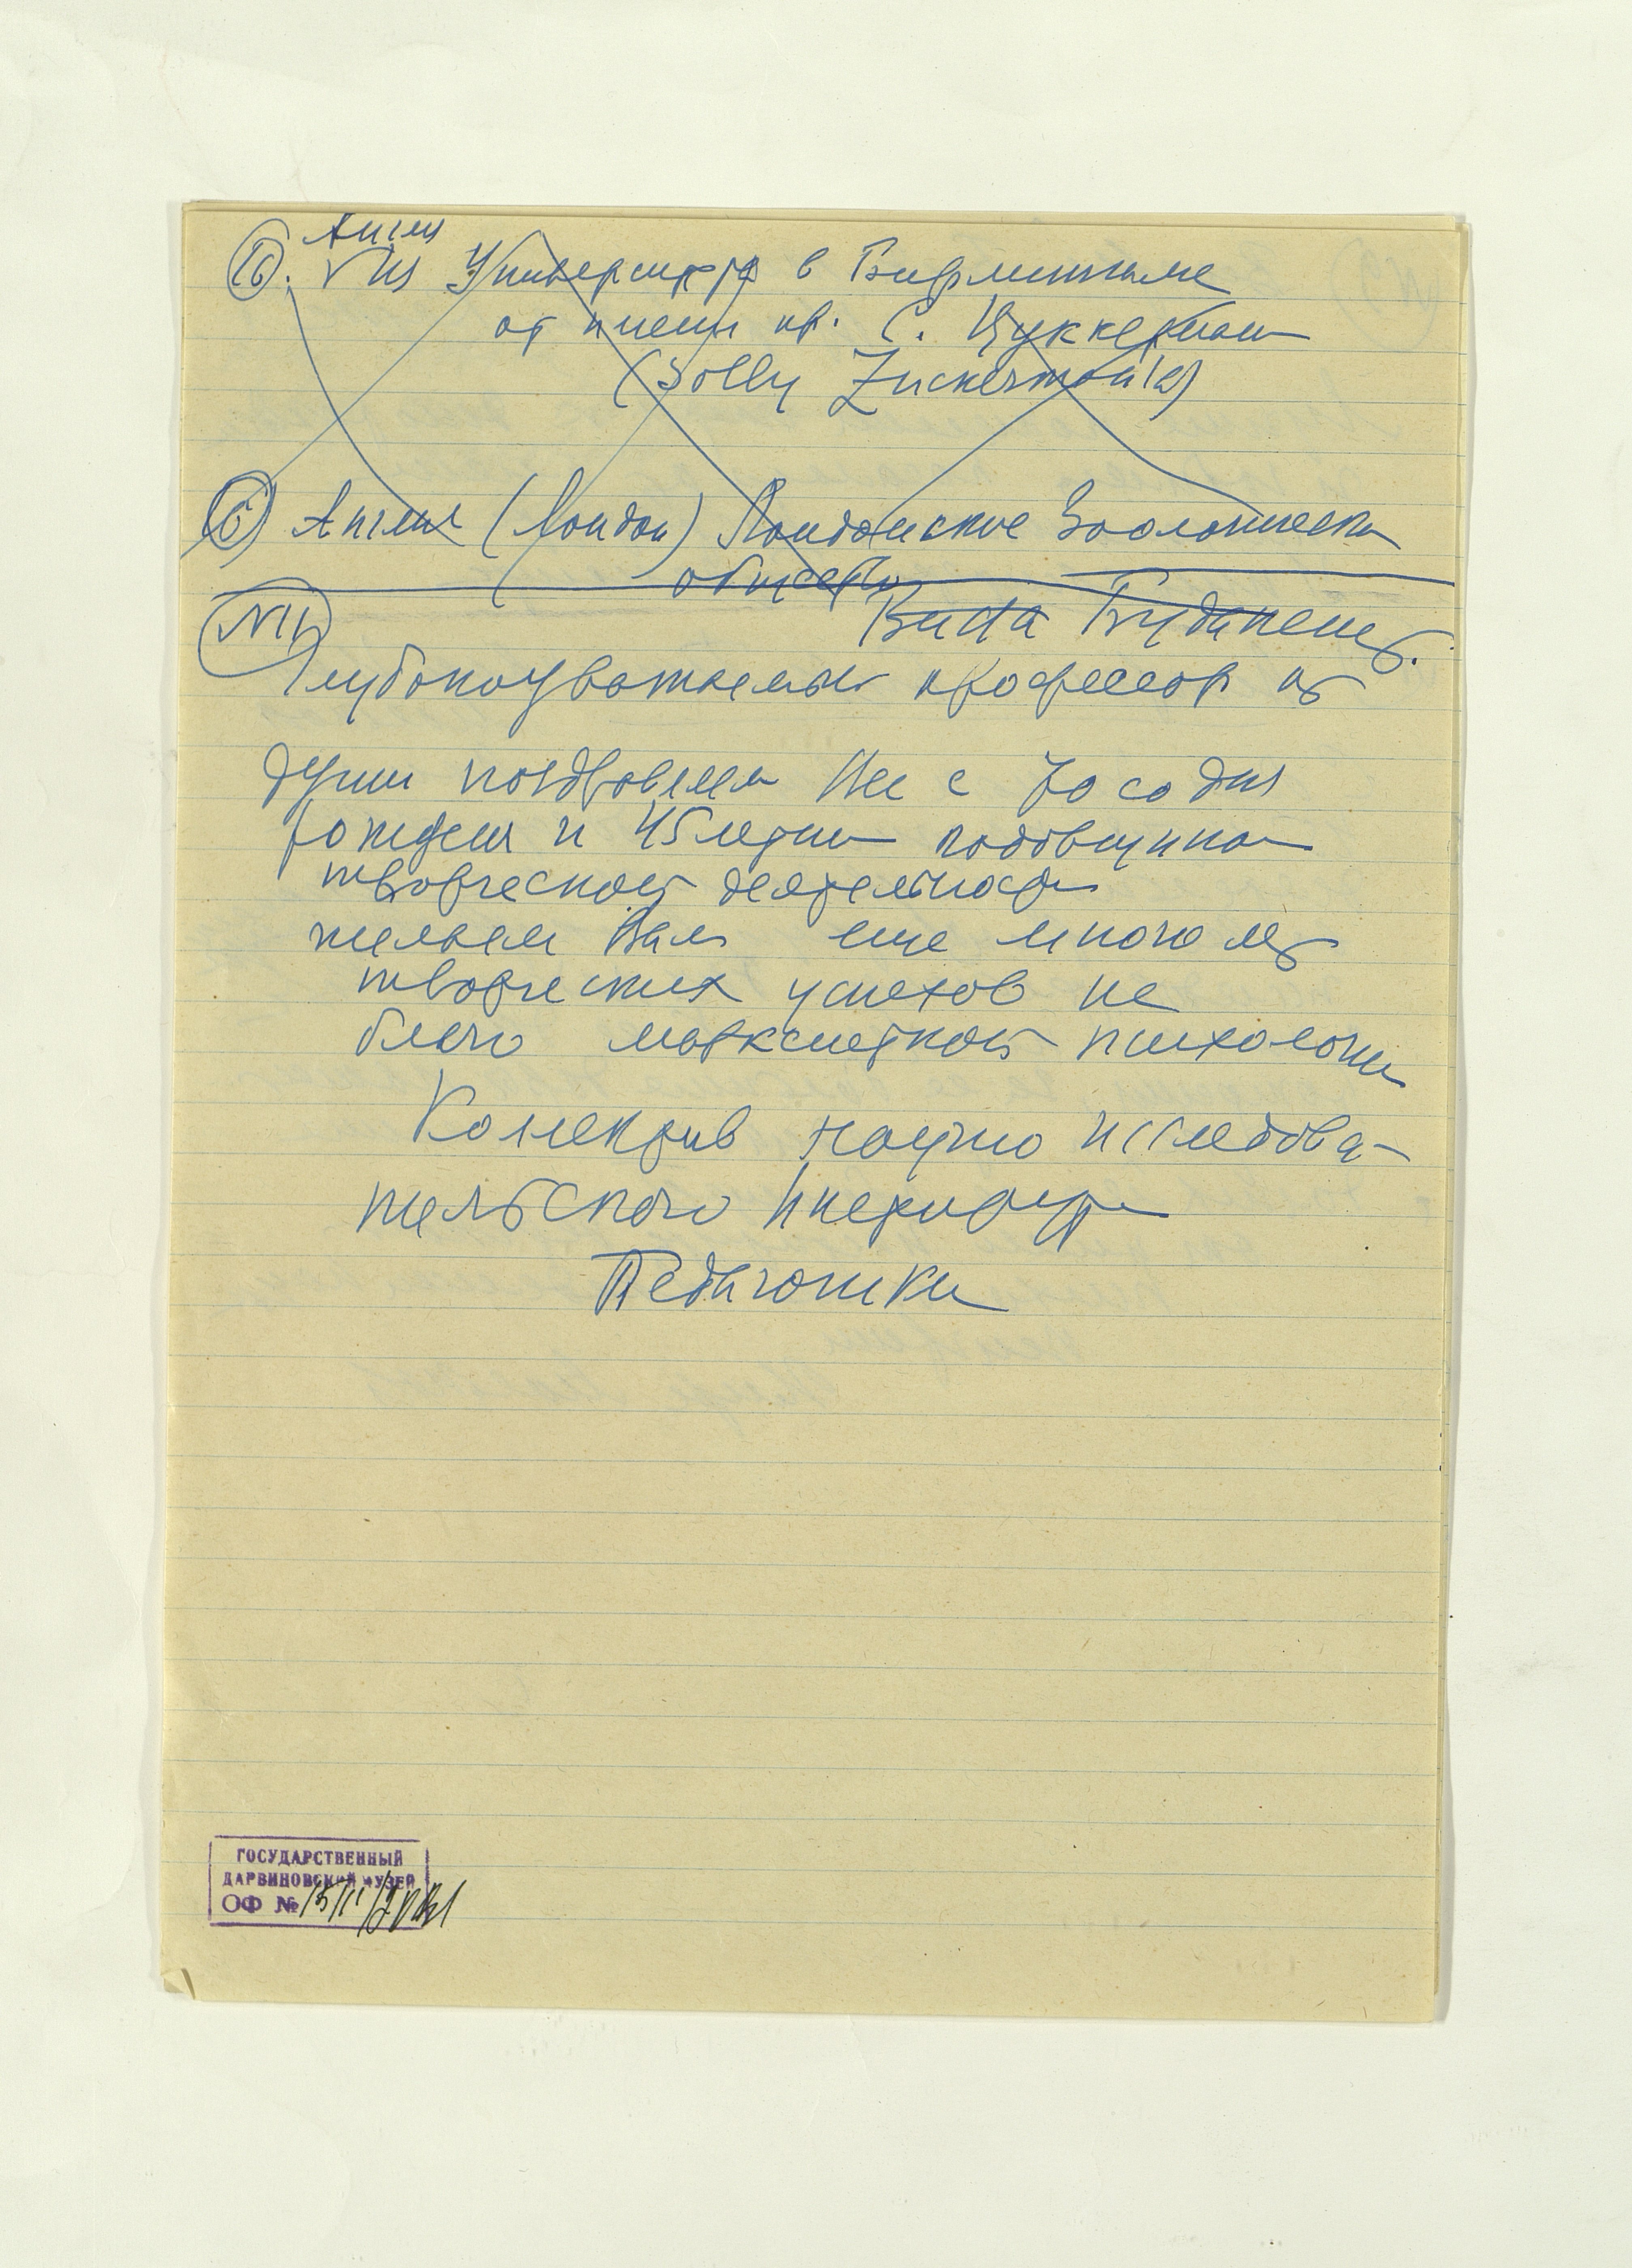 Англия
Из Университета в Бирмингаме
от имени пр. С. Цуккерман
(Solly Zuckerman'a)
Англия (Лондон) Лондонское Зоологическ
общество
Будапешт.
Глубокоуважаемый профессор из
души поздравляем Вас с 70 со дня
рождения и 45 летней годовщиной
творческой деятельности
желаем Вам еще много лет
творческих успехов на
благо марксистской психологии
Коллектив научно исследова-
тельского Института
Педагогики
ГОСУДАРСТВЕННЫЙ
ДАРВИНОВСКИЙ МУЗЕЙ
ОФ №